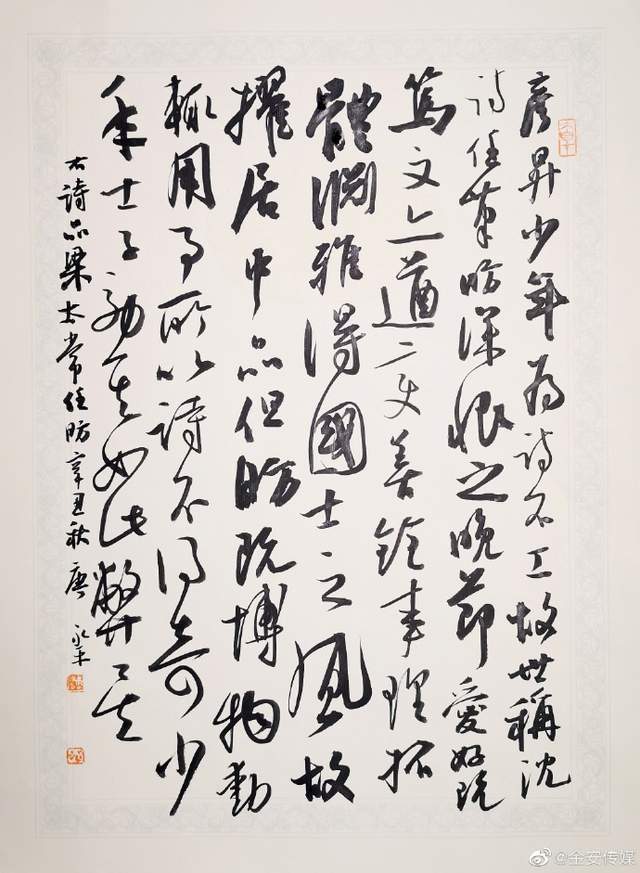 彦昇少年为诗不工故世稱沈
诗任筆昉深恨之晚節愛好既
篤文亦遒变善銓事理拓
體渊雅得國士之風故
擢居中品但昉既博物動
輒用事所以詩不得奇少
年士子効其如此弊矣
右詩品梁太常任昉辛丑秋唐
@全安传媒